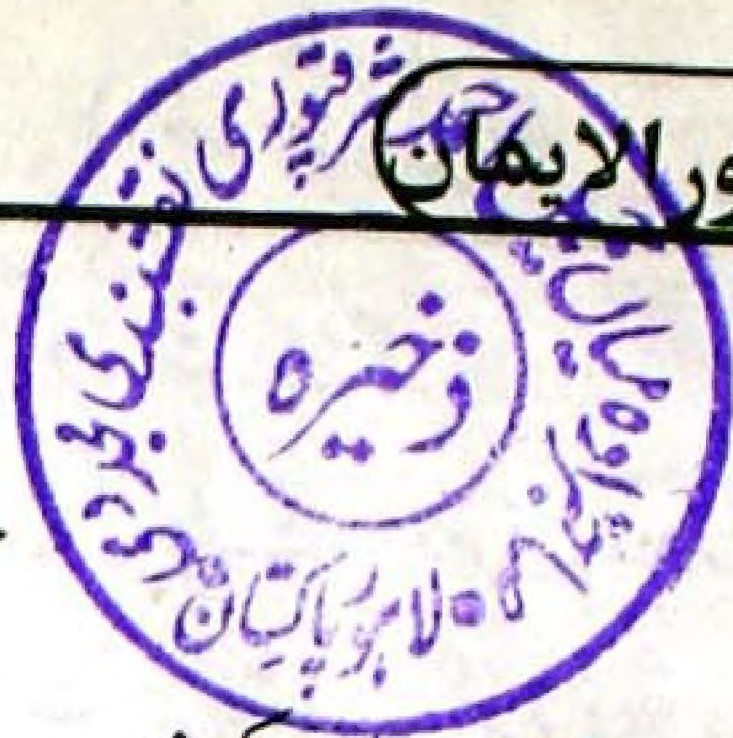 ور الایمان
صاحبزادہ میاں جمیل احمد شرقپوری نقشبندی مجددی
ذخیرہ
لاہور پاکستان